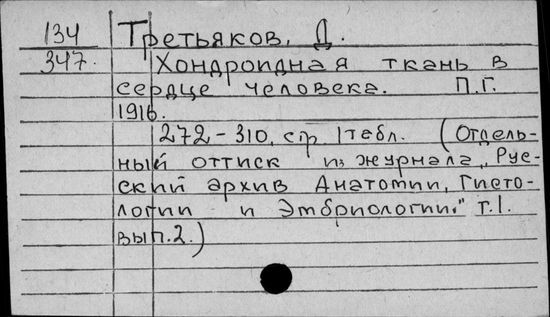 134 Третьяков, Д.
347. Хондроидная ткань в
сердце человека. П.Г.
1916.
272-310, стр. 1табл. (Отдель-
ный оттиск из журнала „Рус-
ский архив Анатомии, Гисто-
логии и Эмбриологии." т.1.
вып.2.)